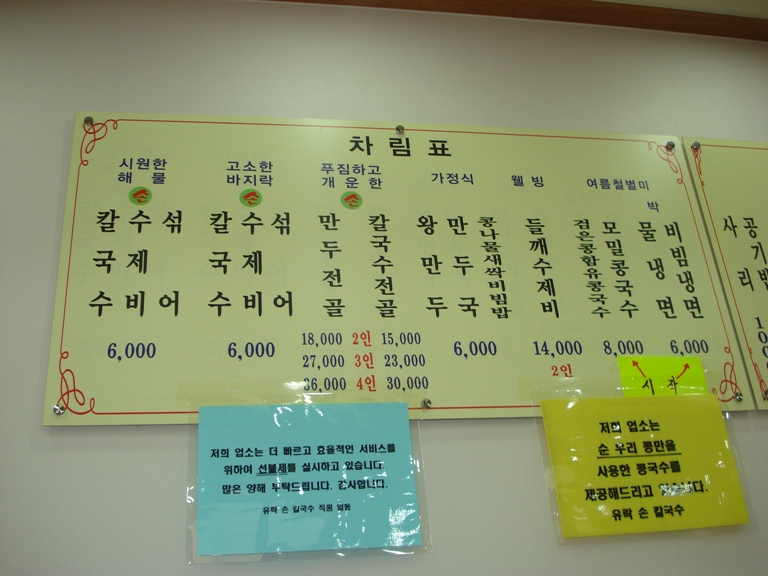 차림표
시원한
해물
손
칼국수
수제비
섞어
6,000
고소한
바지락
손
칼국수
수제비
섞어
6,000
푸짐하고
개운한
손
만두전골
칼국수전골
18,000 2인 15,000
27,000 3인 23,000
36,000 4인 30,000
가정식
왕만두
만두국
콩나물새싹비빔밥
6,000
웰빙
들깨수제비
14,000
2인
여름철별미
검은콩함유콩국수
모밀콩국수
8,000
박
물냉면
비빔냉면
6,000
시작
사리
공기밥
저희 업소는 더 빠르고 효율적인 서비스를
위하여 선불제를 실시하고 있습니다.
많은 양해 부탁드립니다. 감사합니다.
유락 손 칼국수 직원 일동
저희 업소는
순 우리 콩만을
사용한 콩국수를
제공해드리고 있습니다.
유락 손 칼국수